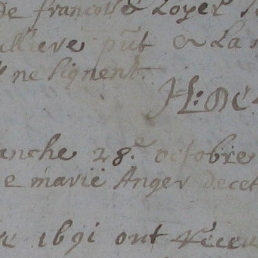 de francois & Loyer
ulliere pnt & La
ne signent.
H: De
anche 28.e octobre
e marie Anger decet
1691 ont receu